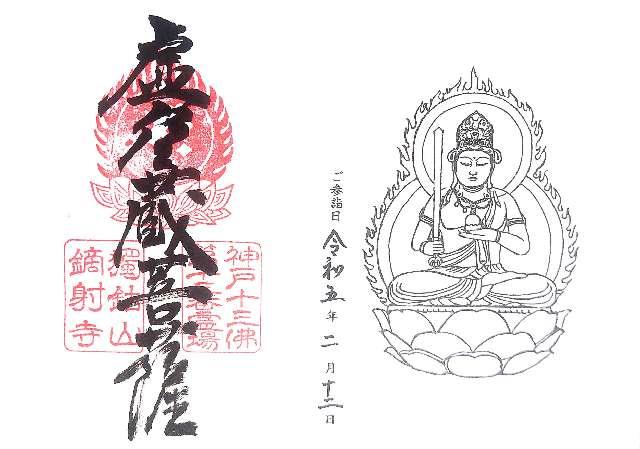 ご参詣日 令和五年二月十二日
虚空蔵菩薩
神戸十三佛
第十三番霊場
獨鈷山
鏑射寺